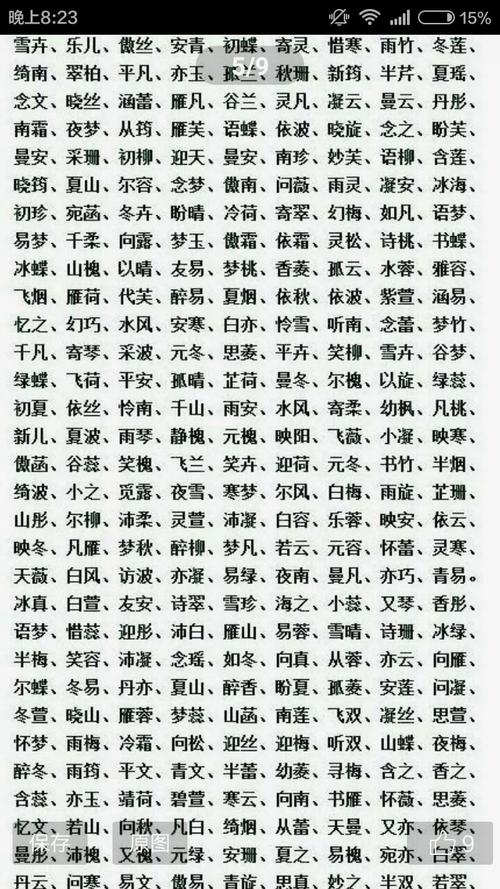 晚上8:23 15%
雪卉、乐儿、傲丝、安青、初蝶、寄灵、惜寒、雨竹、冬莲、
绮南、翠柏、平凡、亦玉、孤兰、秋珊、新筠、半芹、夏瑶、
5/9
念文、晓丝、涵蕾、雁凡、谷兰、灵凡、凝云、曼云、丹彤、
南霜、夜梦、从筠、雁芙、语蝶、依波、晓旋、念之、盼芙、
曼安、采珊、初柳、迎天、曼安、南珍、妙芙、语柳、含莲、
晓筠、夏山、尔容、念梦、傲南、问薇、雨灵、凝安、冰海、
初珍、宛菡、冬卉、盼晴、冷荷、寄翠、幻梅、如凡、语梦、
易梦、千柔、向露、梦玉、傲霜、依霜、灵松、诗桃、书蝶、
冰蝶、山槐、以晴、友易、梦桃、香菱、孤云、水蓉、雅容、
飞烟、雁荷、代芙、醉易、夏烟、依秋、依波、紫萱、涵易、
忆之、幻巧、水风、安寒、白亦、怜雪、听南、念蕾、梦竹、
千凡、寄琴、采波、元冬、思菱、平卉、笑柳、雪卉、谷梦、
绿蝶、飞荷、平安、孤晴、芷荷、曼冬、尔槐、以旋、绿蕊、
初夏、依丝、怜南、千山、雨安、水风、寄柔、幼枫、凡桃、
新儿、夏波、雨琴、静槐、元槐、映阳、飞薇、小凝、映寒、
傲菡、谷蕊、笑槐、飞兰、笑卉、迎荷、元冬、书竹、半烟、
绮波、小之、觅露、夜雪、寒梦、尔风、白梅、雨旋、芷珊、
山彤、尔柳、沛柔、灵萱、沛凝、白容、乐蓉、映安、依云、
映冬、凡雁、梦秋、醉柳、梦凡、若云、元容、怀蕾、灵寒、
天薇、白风、访波、亦凝、易绿、夜南、曼凡、亦巧、青易。
冰真、白萱、友安、诗翠、雪珍、海之、小蕊、又琴、香彤、
语梦、惜蕊、迎彤、沛白、雁山、易蓉、雪晴、诗珊、冰绿、
半梅、笑容、沛凝、念瑶、如冬、向真、从蓉、亦云、向雁、
尔蝶、冬易、丹亦、夏山、醉香、盼夏、孤菱、安莲、问凝、
冬萱、晓山、雁蓉、梦蕊、山菡、南莲、飞双、凝丝、思萱、
怀梦、雨梅、冷霜、向松、迎丝、迎梅、听双、山蝶、夜梅、
醉冬、雨筠、平文、青文、半蕾、幼菱、寻梅、含之、香之、
含蕊、亦玉、靖荷、碧萱、寒云、向南、书雁、怀薇、思菱、
忆文、若山、向秋、凡白、绮烟、从蕾、天曼、又亦、依琴、
保存 原图 9
曼彤、沛槐、又槐、元绿、安珊、夏之、易槐、宛亦、白翠、
丹云、问寒、易文、傲易、青旋、思真、妙之、半双、若翠、